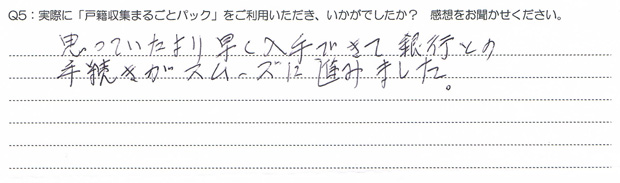 Q5：実際に「戸籍収集まるごとパック」をご利用いただき、いかがでしたか？ 感想をお聞かせください。
思っていたより早く入手できて銀行との
手続きがスムーズに進みました。